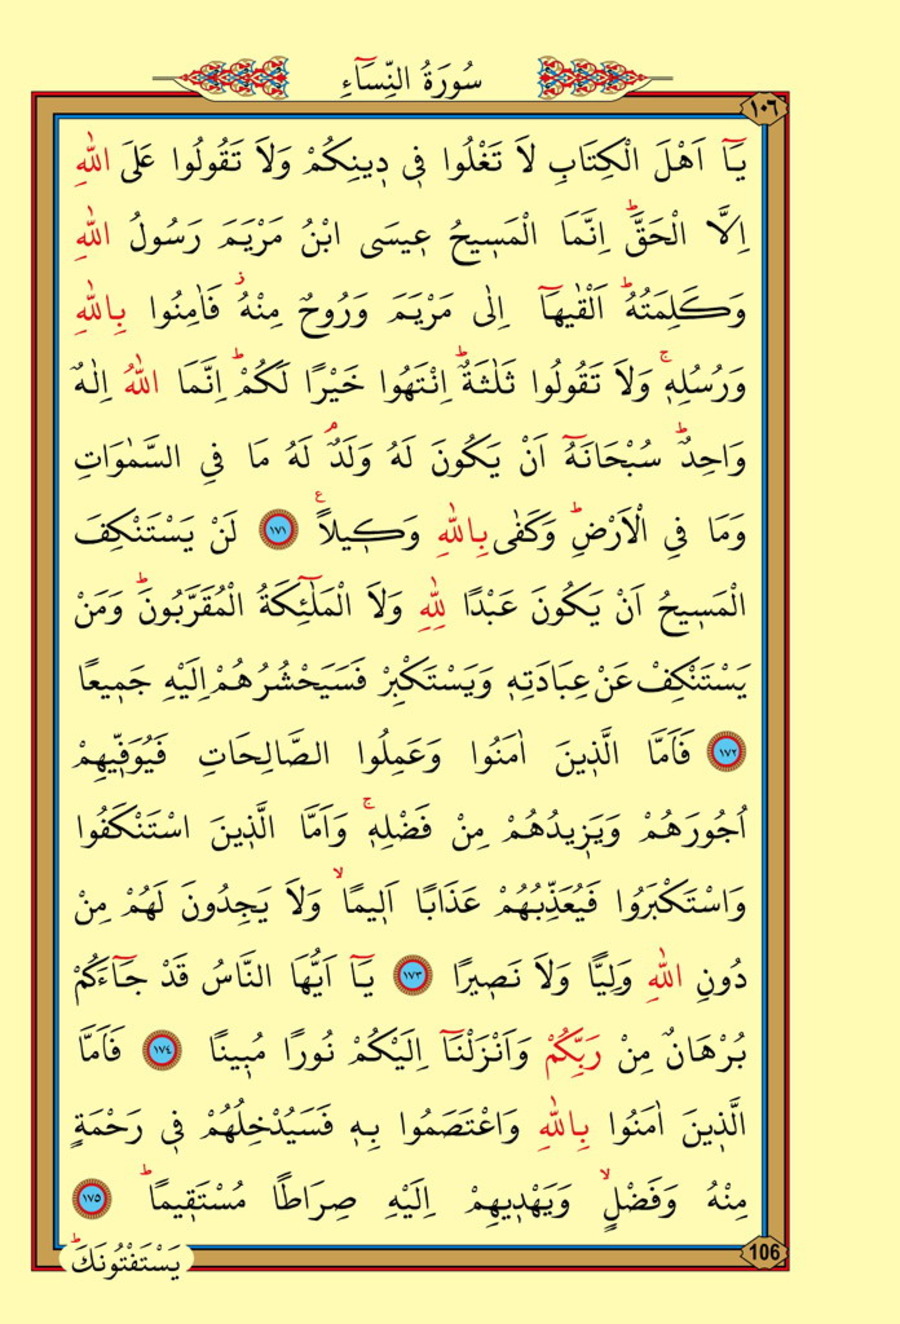 سُورَةُ النِّسَٓاءِ
١٠٦
يَٓا اَهْلَ الْكِتَابِ لَا تَغْلُوا ف۪ي د۪ينِكُمْ وَلَا تَقُولُوا عَلَى اللّٰهِ
اِلَّا الْحَقَّۜ اِنَّمَا الْمَس۪يحُ ع۪يسَى ابْنُ مَرْيَمَ رَسُولُ اللّٰهِ
وَكَلِمَتُهُۜ اَلْقٰيهَٓا اِلٰى مَرْيَمَ وَرُوحٌ مِنْهُۘ فَاٰمِنُوا بِاللّٰهِ
وَرُسُلِه۪ۚ وَلَا تَقُولُوا ثَلٰثَةٌۜ اِنْتَهُوا خَيْرًا لَكُمْۜ اِنَّمَا اللّٰهُ اِلٰهٌ
وَاحِدٌۜ سُبْحَانَهُٓ اَنْ يَكُونَ لَهُ وَلَدٌۢ لَهُ مَا فِي السَّمٰوَاتِ
وَمَا فِي الْاَرْضِۜ وَكَفٰى بِاللّٰهِ وَك۪يلًا ﴿١٧١﴾ لَنْ يَسْتَنْكِفَ
الْمَس۪يحُ اَنْ يَكُونَ عَبْدًا لِلّٰهِ وَلَا الْمَلٰٓئِكَةُ الْمُقَرَّبُونَۜ وَمَنْ
يَسْتَنْكِفْ عَنْ عِبَادَتِه۪ وَيَسْتَكْبِرْ فَسَيَحْشُرُهُمْ اِلَيْهِ جَم۪يعًا
﴿١٧٢﴾ فَاَمَّا الَّذ۪ينَ اٰمَنُوا وَعَمِلُوا الصَّالِحَاتِ فَيُوَفّ۪يهِمْ
اُجُورَهُمْ وَيَز۪يدُهُمْ مِنْ فَضْلِه۪ۚ وَاَمَّا الَّذ۪ينَ اسْتَنْكَفُوا
وَاسْتَكْبَرُوا فَيُعَذِّبُهُمْ عَذَابًا اَل۪يمًاۙ وَلَا يَجِدُونَ لَهُمْ مِنْ
دُونِ اللّٰهِ وَلِيًّا وَلَا نَص۪يرًا ﴿١٧٣﴾ يَٓا اَيُّهَا النَّاسُ قَدْ جَٓاءَكُمْ
بُرْهَانٌ مِنْ رَبِّكُمْ وَاَنْزَلْنَٓا اِلَيْكُمْ نُورًا مُب۪ينًا ﴿١٧٤﴾ فَاَمَّا
الَّذ۪ينَ اٰمَنُوا بِاللّٰهِ وَاعْتَصَمُوا بِه۪ فَسَيُدْخِلُهُمْ ف۪ي رَحْمَةٍ
مِنْهُ وَفَضْلٍۙ وَيَهْد۪يهِمْ اِلَيْهِ صِرَاطًا مُسْتَق۪يمًاۜ ﴿١٧٥﴾
يَسْتَفْتُونَكَۜ
106